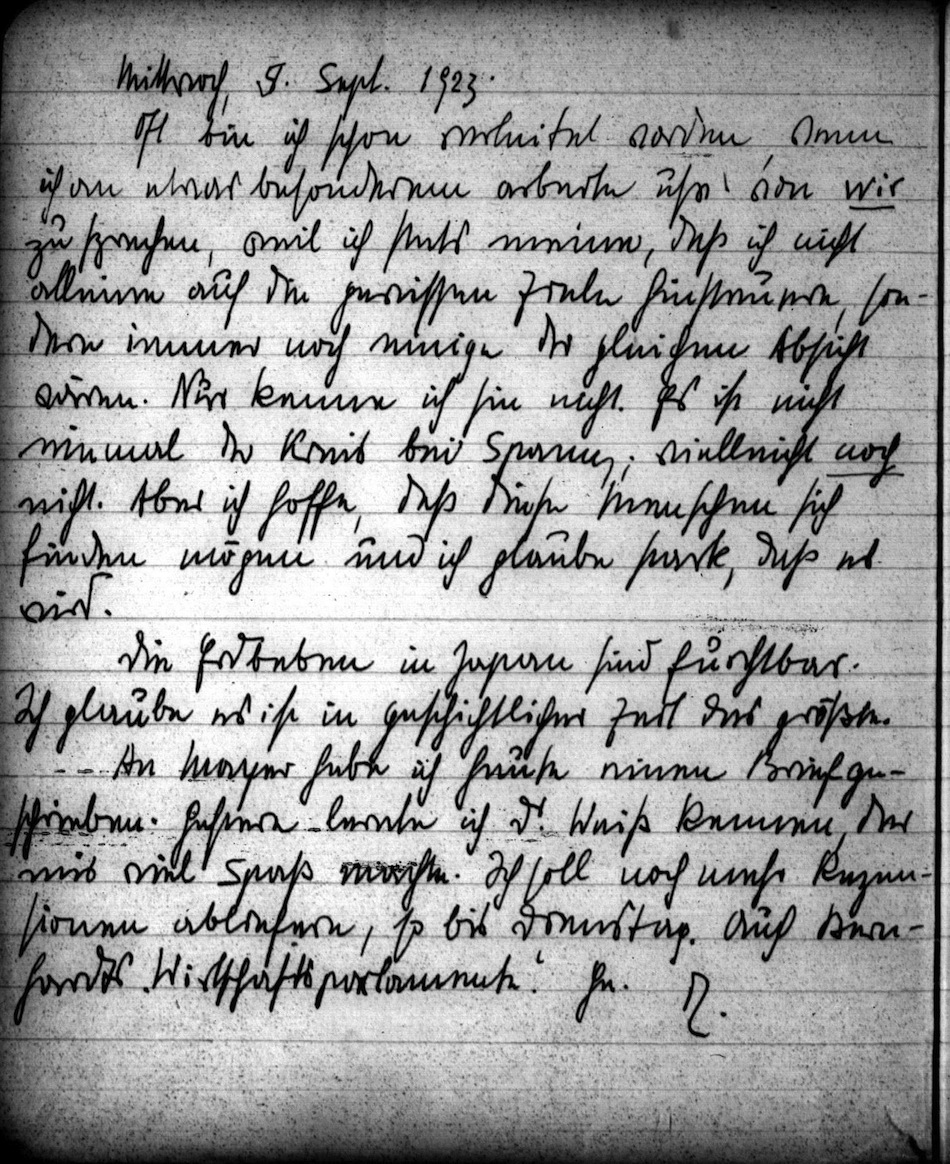 Mittwoch, 5. Sept. 1923.
Oft bin ich schon verleitet worden, wenn
ich an etwas besonderem arbeite usw. von wir
zu sprechen, weil ich stets meine, daß ich nicht
alleine auf die gewissen Ziele hinsteuere, son-
dern immer noch einige der gleichen Absicht
wären. Nur kenne ich sie nicht. Es ist nicht
einmal der Kreis bei Spann; vielleicht noch
nicht. Aber ich hoffe, daß diese Menschen sich
finden mögen und ich glaube stark, daß es
wird.
Die Erdbeben in Japan sind furchtbar.
Ich glaube es ist in geschichtlicher Zeit das größte.
-- An Mayer habe ich heute einen Brief ge-
schrieben. Gestern lernte ich Dr. Weiß kennen, der
mir viel Spaß machte. Ich soll noch mehr Rezen-
sionen abliefern, so bis Dienstag. Auch Bern-
hards „Wirtschaftsparlamente“.